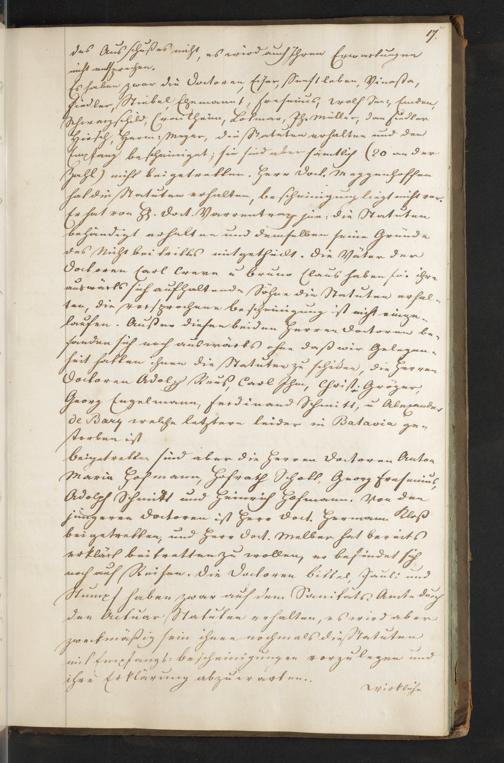 17.
des Ausschußes nicht, es wird auch Ihren Erwartungen
nicht entsprechen.
Es haben zwar die Doctoren Eyser, Sinstleben, Vinassa,
Fiedler, Stiebel, Ehrmann I, Fresenius, Wolf Sen., Emden,
Schwarzschild, Crontheim, Lorey, Ph. Müller, Stiedler
Hirsch, Herm. Meyer, die Statuten erhalten und den
Empfang bescheinigt; sie sind aber sämtlich (20 an der
Zahl) nicht beigetretten. Herr Doct. Meggenhoffen
hat die Statuten erhalten, bescheinigung liegt nicht vor.
Er hat von H. Doct. Varrentrapp jun. die Statuten
behändigt erhalten und demselben seine Gründe
des Nicht beitritts mitgetheilt. Die Väter der
Doctoren Carl Creve u Bruno Claus haben für ihre
auswärts sich aufhaltende Söhne die Statuten erhal-
ten, die versprochene bescheinigung ist nicht einge-
laufen. Außer diesen beiden Herren Doctoren be-
fanden sich noch auswärts ohne daß wir Gelegen-
heit hatten ihnen die Statuten zu schicken, die Herren
Doctoren Adolf Reuß, Carl Ihm, Christ. Gröser
Georg Engelmann, Ferdinand Schmitt, u Alexander
de Bary welche letztere leider in Batavia ge-
storben ist
beigetretten sind aber die Herren Doctoren Anton
Maria Hofmann, Hofrath Scholl, Georg Fresenius,
Adolph Schmidt und Heinrich Hofmann. Von den
jüngeren Doctoren ist Herr Doct. Hermann Kloß
beigetretten, und Herr Doct. Melber hat bereits
erklärt beitretten zu wollen, er befindet sich
noch auf Reisen. Die Doctoren Pauli und
Stumpf haben zwar auf dem Sanitäts Amte durch
den Actuar Statuten erhalten, es wird aber
zweckmäßig sein ihnen nochmals die Statuten
mit Empfangs bescheinigungen vorzulegen und
ihre Erklärung abzuwarten.
Wirkliche